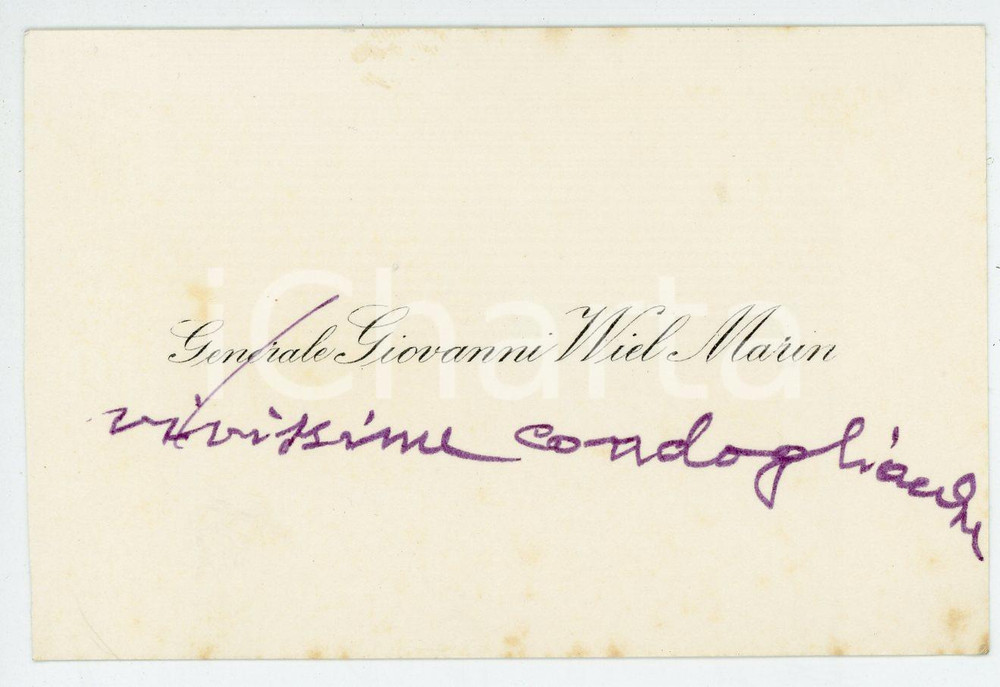 Generale Giovanni Wiel Marin
vivissime condoglianze
iCharta